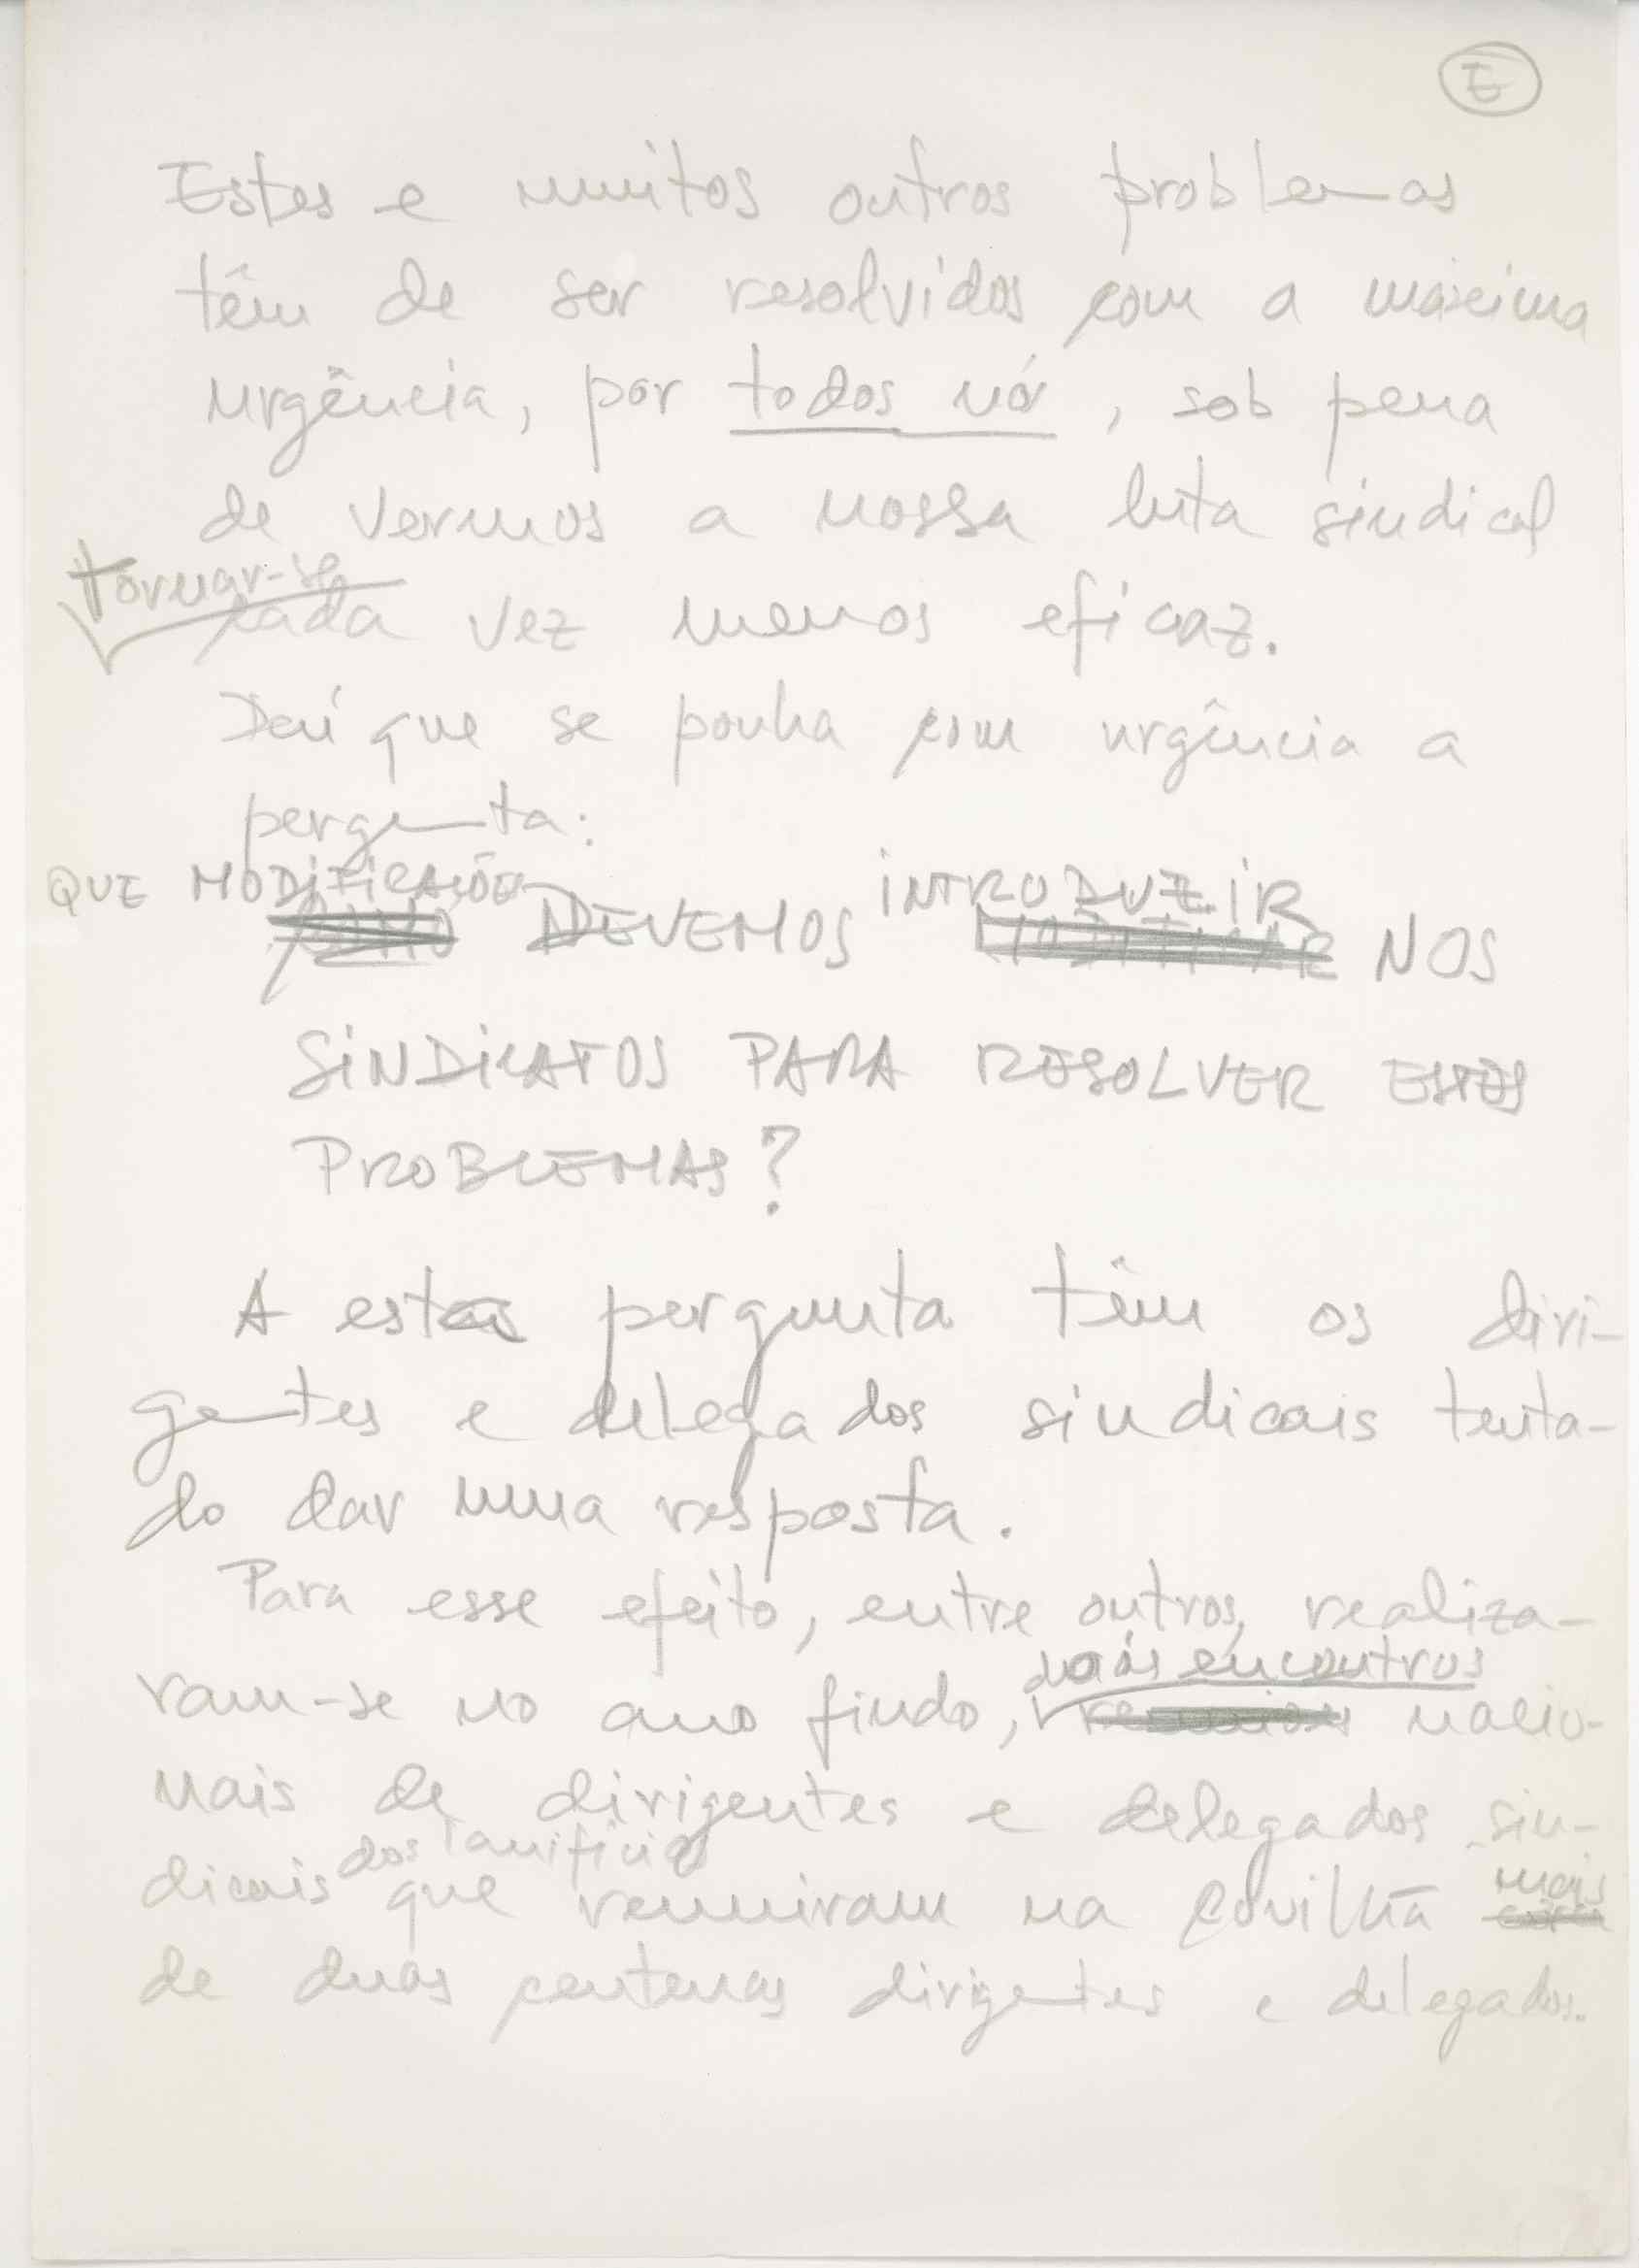 E
Estes e muitos outros problemas
têm de ser resolvidos com a máxima
urgência, por todos nós, sob pena
de vermos a nossa luta sindical
tornar-se
cada vez menos eficaz.
Daí que se ponha com urgência a
pergunta:
QUE MODIFICAÇÕES INTRODUZIR
COMO DEVEMOS MODIFICAR NOS
SINDICATOS PARA RESOLVER ESTES
PROBLEMAS?
A esta pergunta têm os diri-
gentes e delegados sindicais tenta-
do dar uma resposta.
Para esse efeito, entre outros, realiza-
encontros
ram-se no ano findo, reuniões nacio-
nais de dirigentes e delegados sin-
dos lanifícios
dicais que reuniram na Covilhã mais
cerca
de duas centenas dirigentes e delegados.